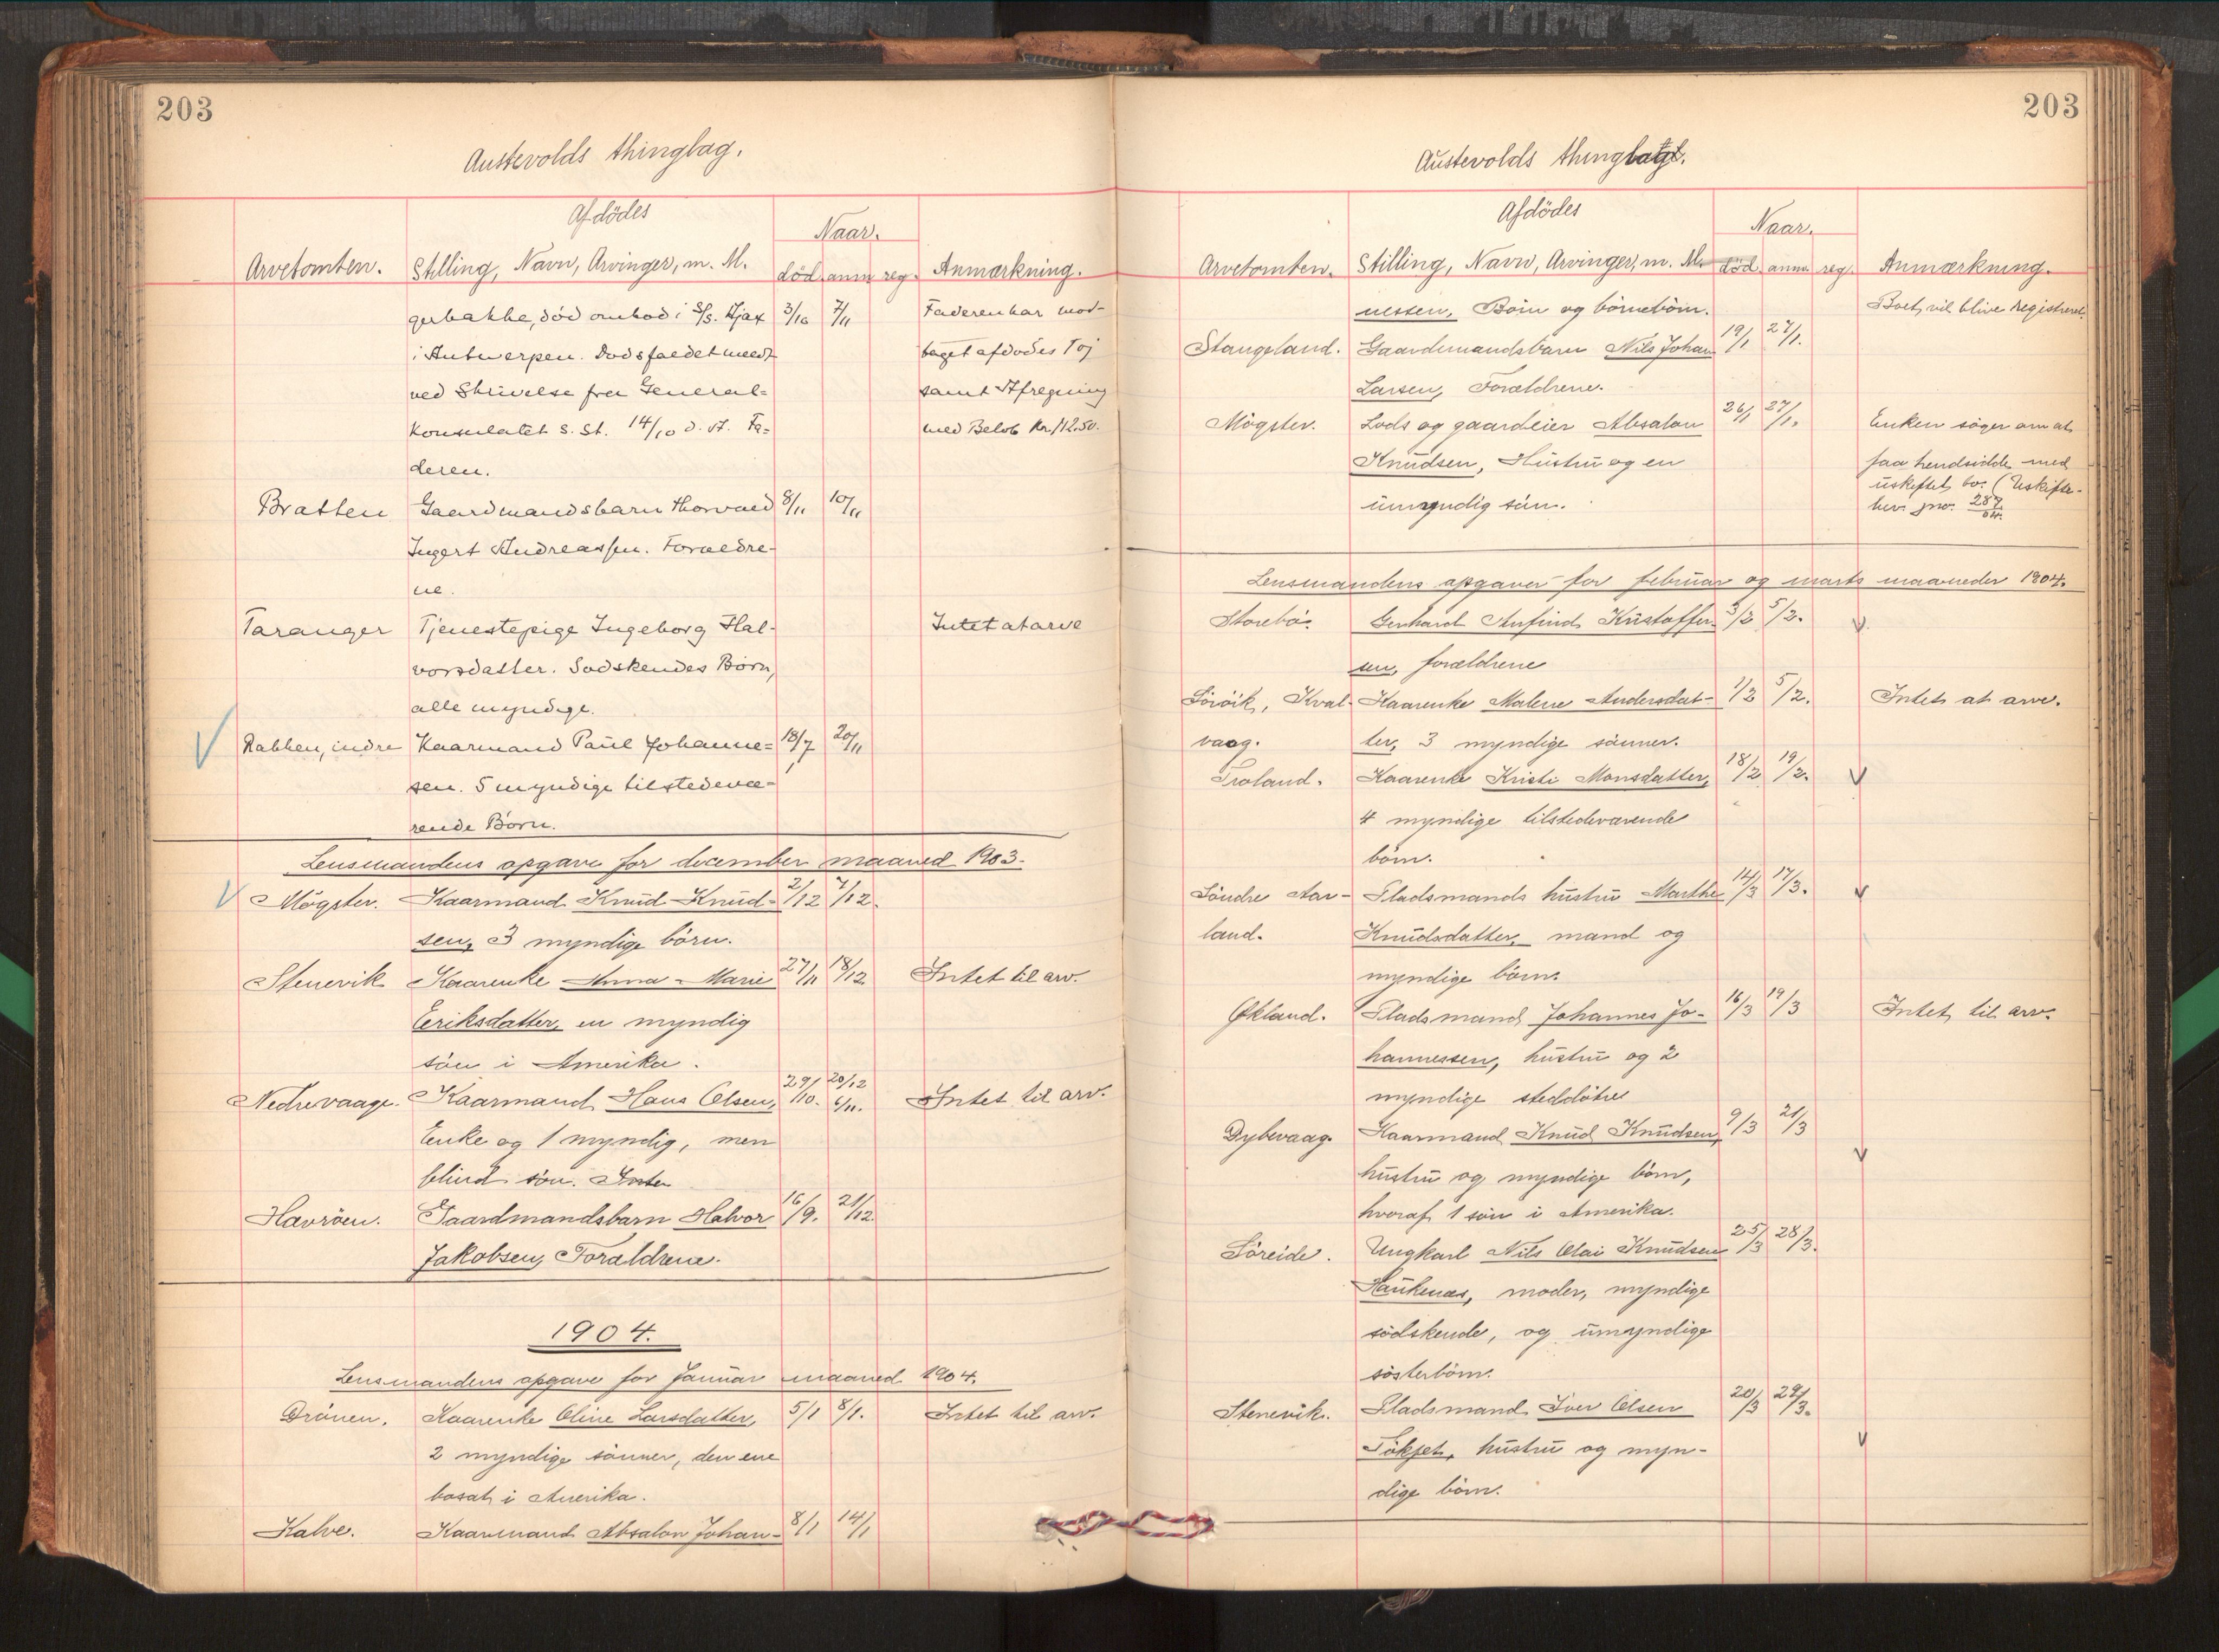 203
Austevolds thinglag.
Afdödes
Naar.
Arvetomten. Stilling, Navn, Arvinger, m. M. död anm. reg. Anmærkning.
gerbakke, död ombod i S/S. Ajax 3/10 7/11 Faderen har mod-
i Antwerpen. Dødsfaldet meldt taget afdødes Tøj
ved Skrivelse fra General= samt Afregning
konsulatet s. St. 14/10 d. A. Fa= med Beløb Kr. 112.50.
deren.
Bratten Gaardmandsbarn Thorvald 8/11 10/11
Ingert Andreassen. Forældre-
ne.
Taranger Tjenestepige Ingeborg Hal- Intet at arve
vorsdatter. Sødskendes Børn,
alle myndige.
Rabben, indre Kaarmand Paul Johanne= 18/7 20/11
sen. 5 myndige tilstedevæ-
rende Børn.
Lensmandens opgave for december maaned 1903.
Mögster. Kaarmand Knud Knud- 2/12 7/12.
sen, 3 myndige börn.
Stenevik Kaarenke Anna Marie 27/11 18/12 Intet til arv.
Eeriksdatter, en myndig
sön i Amerika.
Nedrevaage. Kaarmand Hans Olsen, 29/10. 20/12 6/11. Intet til arv.
Enke og 1 myndig, men
blind sön.
Havröen. Gaardmandsbarn Halvor 16/9. 21/12.
Jakobsen, Forældrene.
1904.
Lensmandens opgave for Januar maaned 1904.
Drönen. Kaarenke Oline Larsdatter, 5/1 8/1. Intet til arv.
2 myndige sönner, den ene
bosat i Amerika.
Kalve. Kaarmand Absalon Johan- 8/1 14/1
203
Austevolds thinglag.
Afdödes
Naar.
Arvetomten. Stilling, Navn, Arvinger, m. M. död anm. reg. Anmærkning.
nessen, Börn og börnebörn. Boet vil blive registreret.
Stangeland. Gaardmandsbarn Nils Johan 19/1 27/1.
Larsen, Forældrene.
Mögster. Lods og gaardeier Absalon 26/1 27/1. Enken söger om at
Knudsen, Hustru og en faa hensidde med
umyndig sön. uskiftet bo. (Uskifte-
bev. jno. 287/04.
Lensmandens opgaver for februar og marts maaneder 1904.
Storebö. Gerhard Anfind Kristoffer- 3/2 5/2.
sen, forældrene
Sörvik, Kval- Kaarenke Malene Andersdat- 1/2 5/2. Intet at arve.
vaag. ter, 3 myndige sönner.
Troland. Kaarenke Kristi Monsdatter, 18/2 19/2.
4 myndige tilstedeværende
börn.
Söndre Aar- Pladsmands hustru Marthe 14/3 17/3.
land. Knudsdatter, mand og
myndige börn.
Økland. Pladsmand Johannes Jo- 16/3 19/3 Intet til arv.
hannessen, hustru og 2
myndige steddötre
Dybevaag. Kaarmand Knud Knudsen, 9/3 21/3
hustru og myndige börn,
hvoraf 1 sön i Amerika.
Söreide. Ungkarl Nils Olai Knudsen 25/3 28/3.
Haukenæs, moder, myndige
södskende, og umyndige
sösterbörn.
Stenevik. Pladsmand Iver Olsen 20/3 29/3.
hustru og myn-
dige börn.